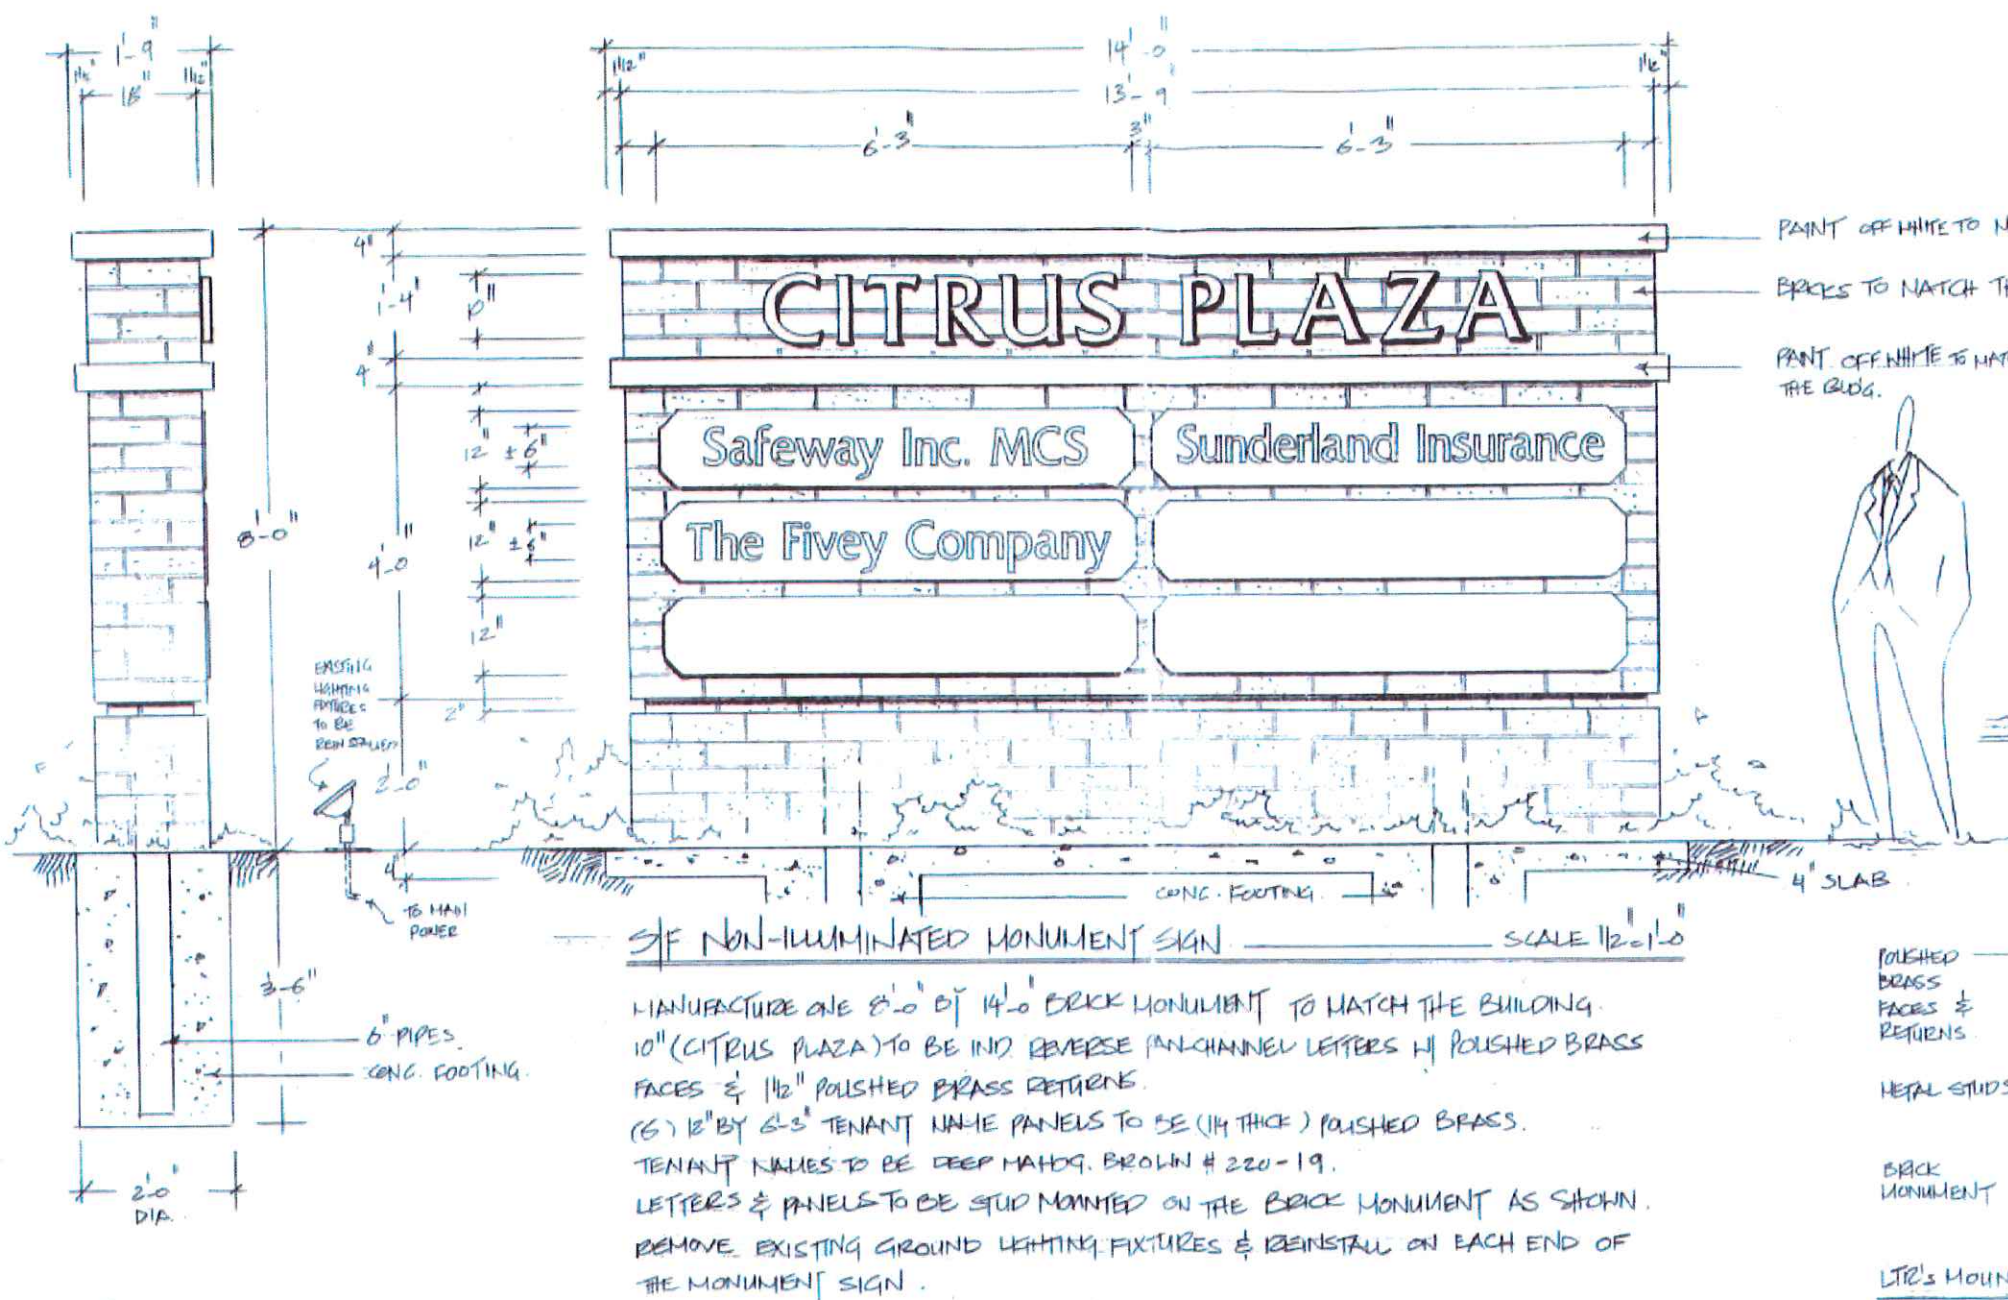 1'-9"
1 1/2" 18" 1 1/2"
14'-0"
1 1/2" 13'-9" 1 1/2"
6'-3" 3" 6'-3"
4"
1'-4"
10"
4"
8'-0"
4'-0"
12" ±6"
12" ±6"
12"
2"
2'-0"
4"
CITRUS PLAZA
Safeway Inc. MCS
Sunderland Insurance
The Fivey Company
PAINT OFF WHITE TO
BRICKS TO MATCH
PAINT OFF WHITE TO
THE BLDG.
EXISTING
LIGHTING
FIXTURES
TO BE
REINSTALLED
TO MAIN
POWER
3'-6"
6" PIPES
CONC. FOOTING.
2'-0"
DIA.
CONC. FOOTING
4" SLAB
S/F NON-ILLUMINATED MONUMENT SIGN SCALE 1/2"=1'-0"
MANUFACTURE ONE 8'-0" BY 14'-0" BRICK MONUMENT TO MATCH THE BUILDING.
10" (CITRUS PLAZA) TO BE IND. REVERSE PAN-CHANNEL LETTERS W/ POLISHED BRASS
FACES & 1 1/2" POLISHED BRASS RETURNS.
(6) 12" BY 6'-3" TENANT NAME PANELS TO BE (1/4 THICK) POLISHED BRASS.
TENANT NAMES TO BE DEEP MAHOG. BROWN # 220-19.
LETTERS & PANELS TO BE STUD MOUNTED ON THE BRICK MONUMENT AS SHOWN.
REMOVE EXISTING GROUND LIGHTING FIXTURES & REINSTALL ON EACH END OF
THE MONUMENT SIGN.
POLISHED
BRASS
FACES &
RETURNS.
METAL STUDS
BRICK
MONUMENT
LTR's